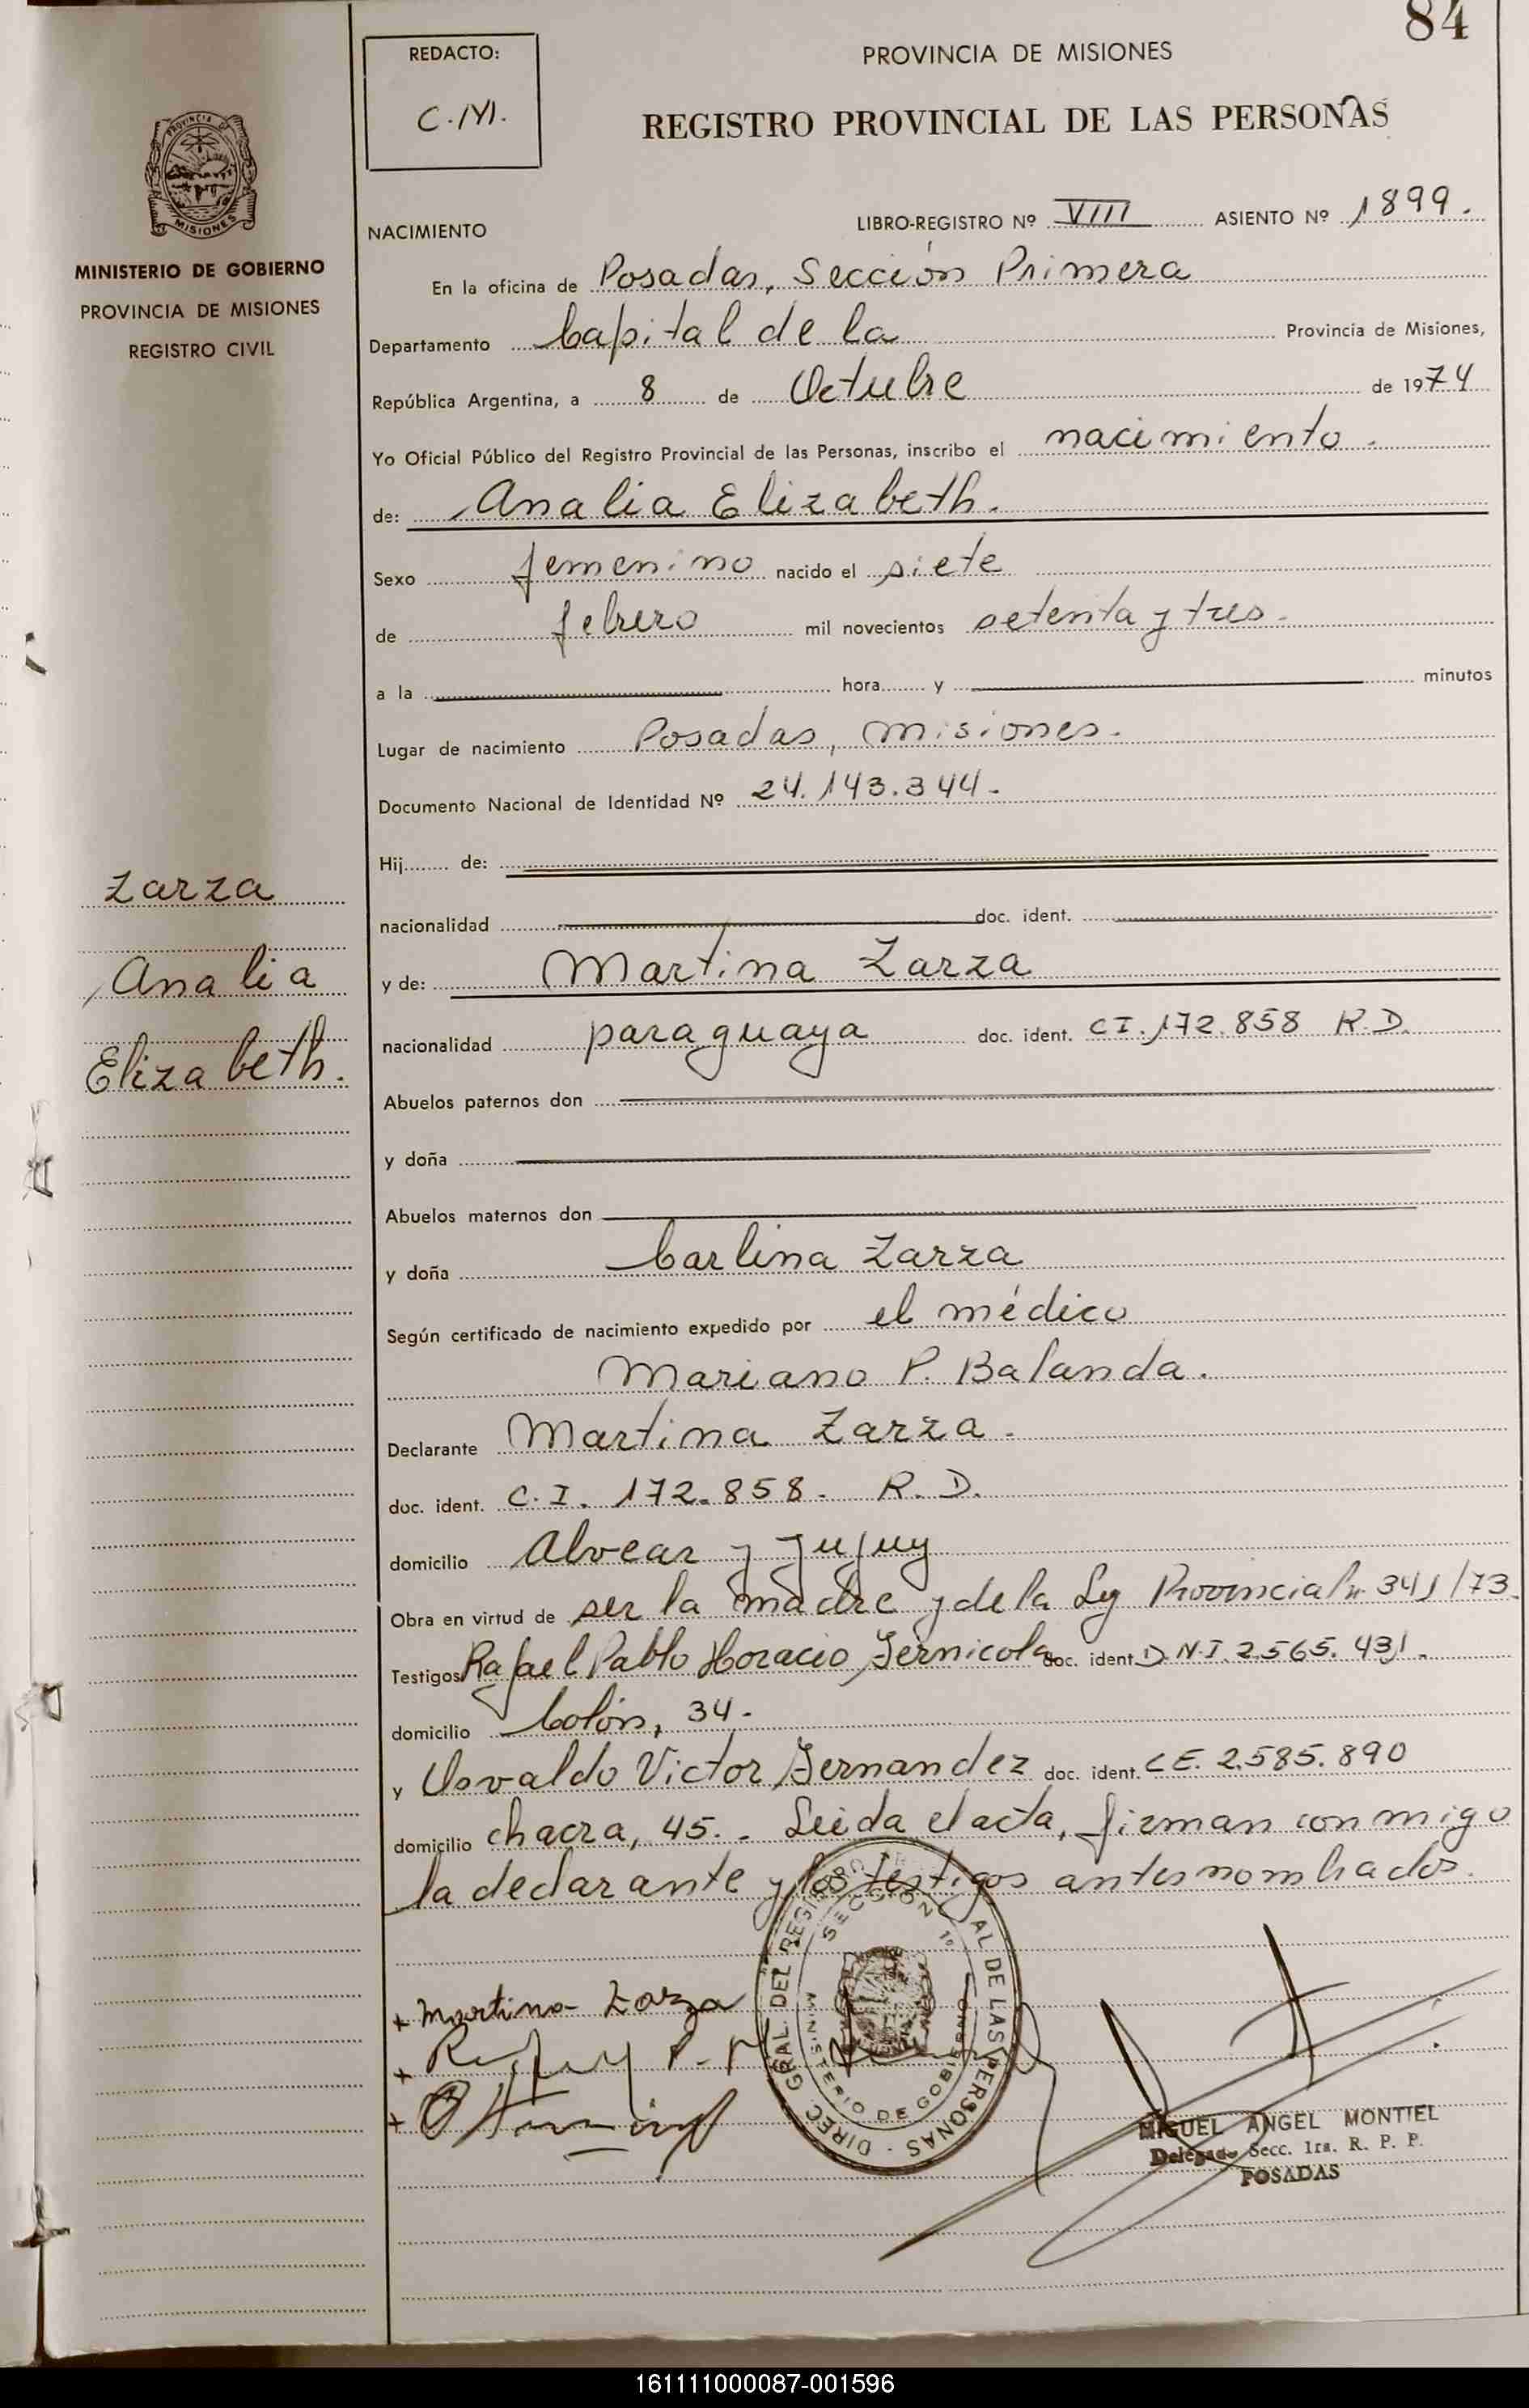 84
REDACTO:
C.M.
PROVINCIA DE MISIONES
REGISTRO PROVINCIAL DE LAS PERSONAS
PROVINCIA DE
MISIONES
MINISTERIO DE GOBIERNO
PROVINCIA DE MISIONES
REGISTRO CIVIL
NACIMIENTO
LIBRO-REGISTRO Nº VIII ASIENTO Nº 1899.
En la oficina de Posadas, Sección Primera
Departamento Capital de la Provincia de Misiones,
República Argentina, a 8 de Octubre de 1974
Yo Oficial Público del Registro Provincial de las Personas, inscribo el nacimiento.
de: Analia Elizabeth.
Sexo femenino nacido el siete
de febrero mil novecientos setenta y tres.
a la hora y minutos
Lugar de nacimiento Posadas, Misiones.
Documento Nacional de Identidad Nº 24.143.344.
Hij de:
nacionalidad doc. ident.
y de: Martina Zarza
nacionalidad paraguaya doc. ident. CI. 172.858 R.D.
Abuelos paternos don
y doña
Abuelos maternos don
y doña Carlina Zarza
Según certificado de nacimiento expedido por el médico
Mariano P. Balanda.
Declarante Martina Zarza.
doc. ident. C.I. 172.858. R.D.
domicilio Alvear y Jujuy
Obra en virtud de ser la madre y de la Ley Provincial nº 341/73.
Testigos Rafael Pablo Horacio Jernicola doc. ident. D.N.I. 2.565.431.
domicilio Colón, 34.
y Osvaldo Victor Fernandez doc. ident. C.E. 2.585.890
domicilio chacra, 45.. Leida el acta, firman conmigo
la declarante y los testigos antes nombrados.
Zarza
Analia
Elizabeth.
+ Martina Zarza
+
+
DIREC. GRAL DEL REGISTRO AL DE LAS PERSONAS
SECCION 1º
MINISTERIO DE GOBIERNO
MIGUEL ANGEL MONTIEL
Delegado Secc. 1ra. R. P. P.
POSADAS
161111000087-001596